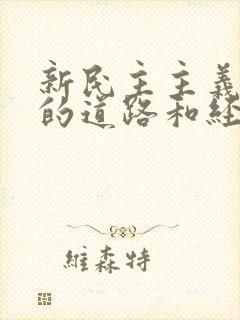 新民主主義
的道路和經
維森特